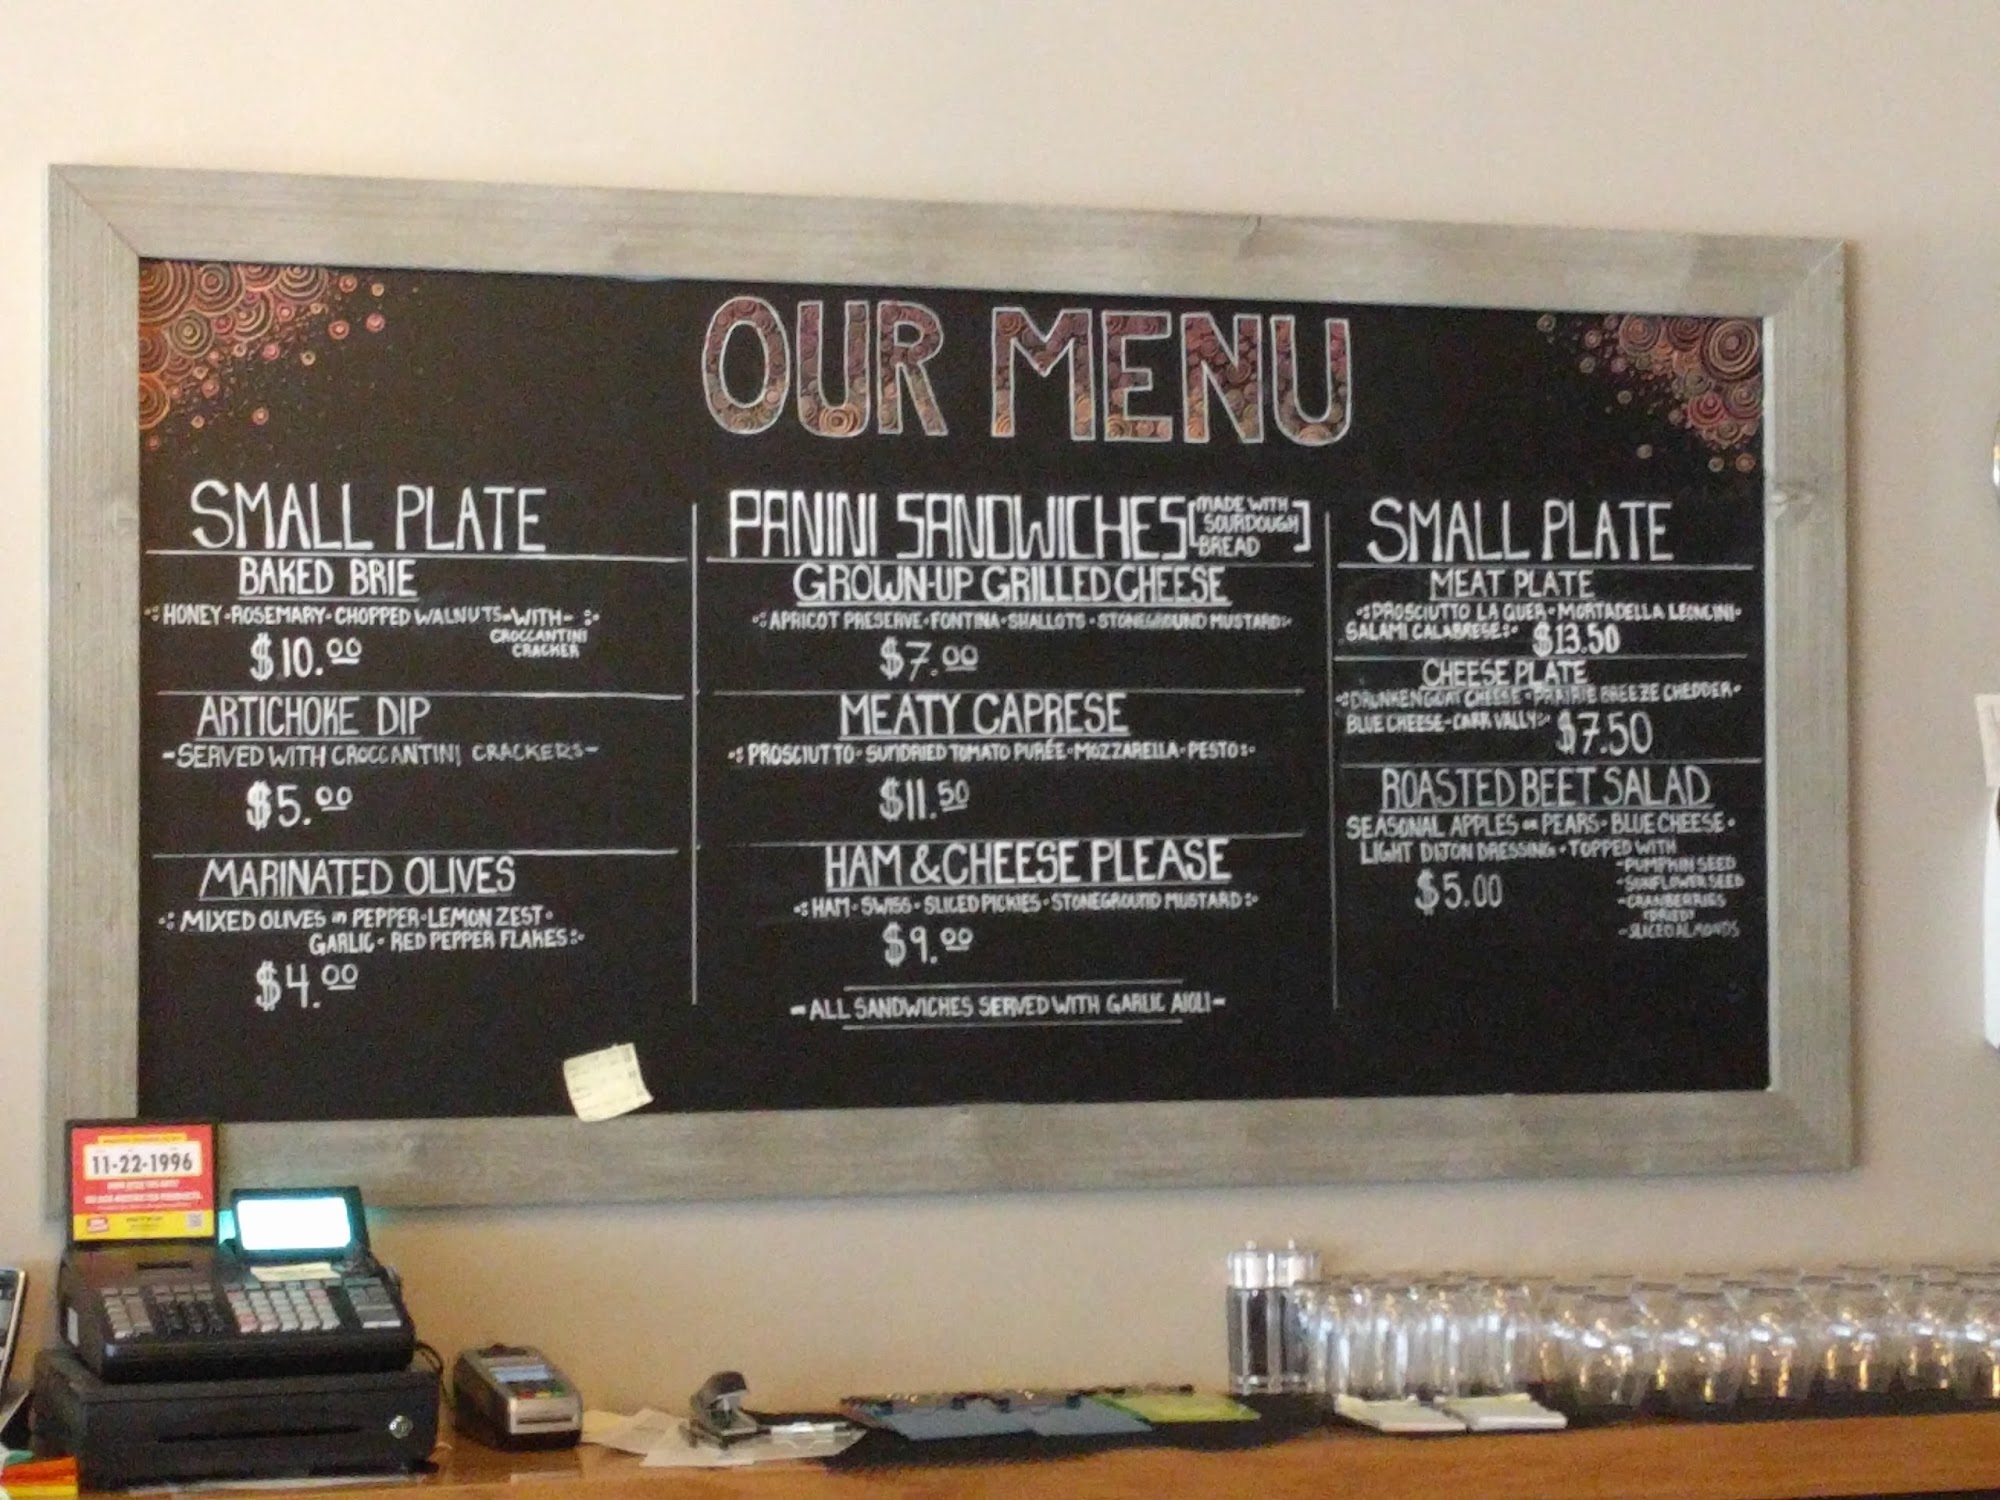 OUR MENU
SMALL PLATE
BAKED BRIE
HONEY·ROSEMARY·CHOPPED WALNUTS-WITH-
CROCCANTINI
CRACKER
$10.00
ARTICHOKE DIP
-SERVED WITH CROCCANTINI CRACKERS-
$5.00
MARINATED OLIVES
MIXED OLIVES in PEPPER·LEMON ZEST·
GARLIC· RED PEPPER FLAKES
$4.00
PANINI SANDWICHES [MADE WITH
SOURDOUGH
BREAD]
GROWN-UP GRILLED CHEESE
APRICOT PRESERVE·FONTINA·SHALLOTS·STONEGROUND MUSTARD
$7.00
MEATY CAPRESE
PROSCIUTTO·SUNDRIED TOMATO PURÉE·MOZZARELLA·PESTO
$11.50
HAM & CHEESE PLEASE
HAM·SWISS·SLICED PICKLES·STONEGROUND MUSTARD
$9.00
-ALL SANDWICHES SERVED WITH GARLIC AIOLI-
SMALL PLATE
MEAT PLATE
PROSCIUTTO LA QUER·MORTADELLA LEONCINI·
SALAMI CALABRESE $13.50
CHEESE PLATE
DRUNKEN GOAT CHEESE·PRAIRIE BREEZE CHEDDER·
BLUE CHEESE-CARR VALLY $7.50
ROASTED BEET SALAD
SEASONAL APPLES or PEARS·BLUE CHEESE·
LIGHT DIJON DRESSING·TOPPED WITH
-PUMPKIN SEED
-SUNFLOWER SEED
-CRANBERRIES
(DRIED)
-SLICED ALMONDS
$5.00
11-22-1996